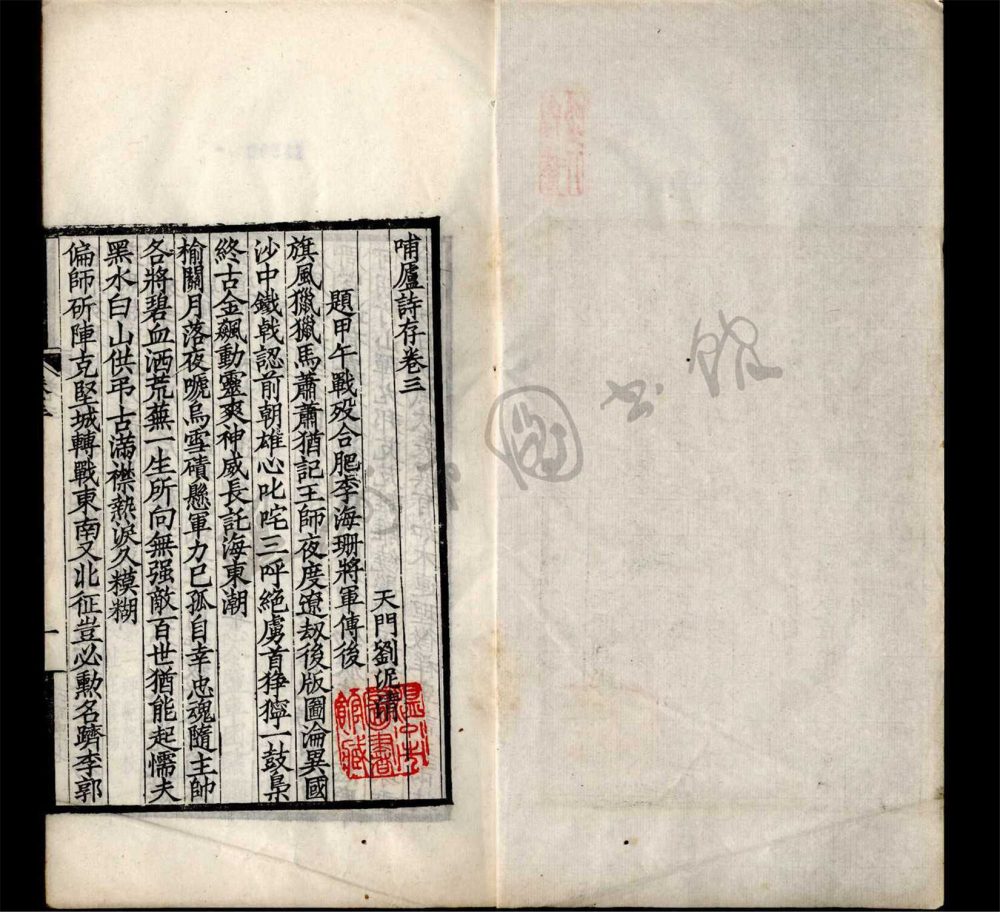 哺廬詩存卷三
天門劉泥清
題甲午戰歿合肥李海珊將軍傳後
旗風獵獵馬蕭蕭猶記王師夜度遼刼後版圖淪異國
沙中鐵戟認前朝雄心叱咤三呼絕虜首猙獰一鼓梟
終古金飆動靈爽神威長託海東潮
榆關月落夜嗁烏雪磧懸軍力已孤自幸忠魂隨主帥
各將碧血洒荒蕪一生所向無强敵百世猶能起懦夫
黑水白山供弔古滿襟熱淚久糢糊
偏師斫陣克堅城轉戰東南又北征豈必勳名躋李郭
一
圖書館
圖書館藏